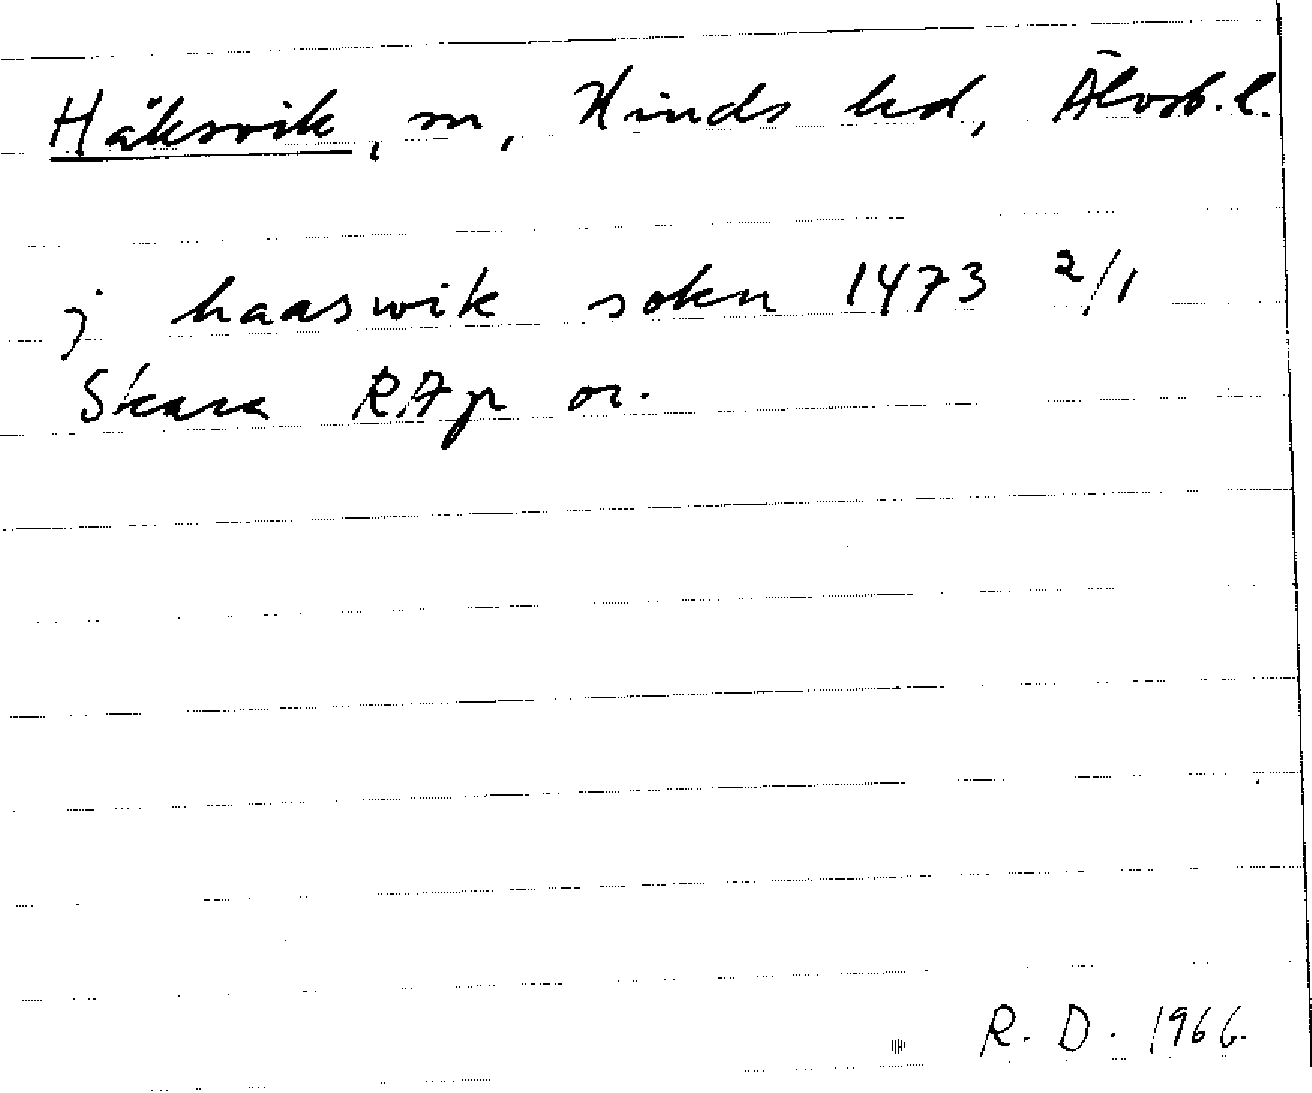 Häksvik, sn, Kinds hd, Älvsb. l.
j haaswik sokn 1473 2/1
Skara RAp or.
R. D. 1966.